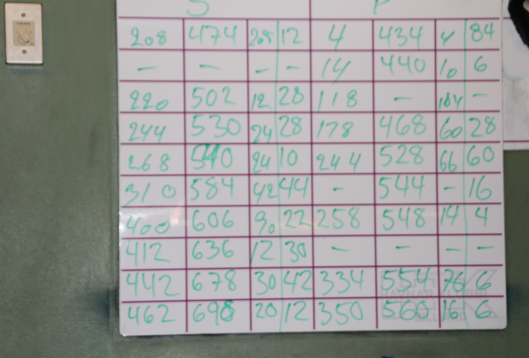 208 474 208 12 4 434 4 84
- - - - 14 440 10 6
220 502 12 28 118 - 104 -
244 530 24 28 178 468 60 28
268 540 24 10 244 528 66 60
310 584 42 44 - 544 - 16
400 606 90 22 258 548 14 4
412 636 12 30 - - - -
442 678 30 42 334 554 76 6
462 698 20 12 350 560 16 6